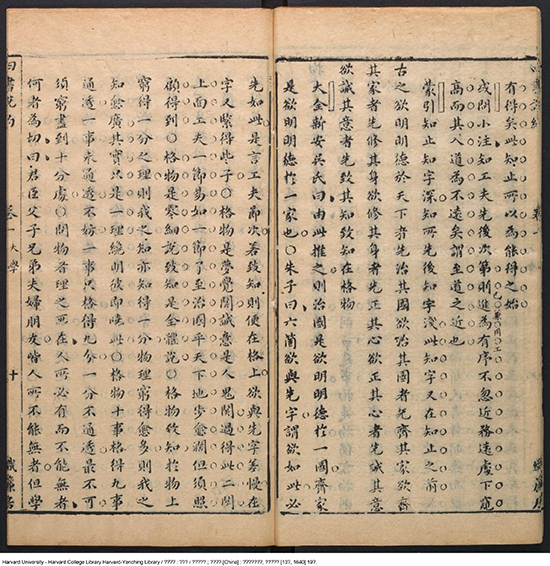 有得矣此知止所以為能得之始
或問小注知工夫先後次第則進為有序不忽近務遠處下窺
高而其入道為不遠矣謂至道之近也
蒙引知止知字深知所先後知字淺此知字又在知止之前
古之欲明明德於天下者先治其國欲治其國者先齊其家欲齊
其家者先修其身欲修其身者先正其心欲正其心者先誠其意
欲誠其意者先致其知致知在格物
大全新安吳氏曰由此推之則治國是欲明明德於一國齊家
是欲明明德於一家也○朱子曰六箇欲與先字謂欲如此必
先如此是言工夫節次若致知則便在格上欲與先字差慢在
字又緊得些子○格物是夢覺關誠意是人鬼關過得此二關
上面工夫一節易如一節了至治國平天下地步愈濶但須照
顧得到○格物是零細說致知是全體說○格物致知於物上
窮得一分之理則我之知亦知得一分物理窮得愈多則我之
知愈廣其實只是一理纔明彼即曉此○格物十事格得九事
通透一事未通透不妨一事只格得九分一分不通透最不可
須窮盡到十分處○問物者理之所在人所必有而不能無者
何者為切曰君臣父子兄弟夫婦朋友皆人所不能無者但學
四書說約 卷一 大學 十 織簾居
Harvard University - Harvard College Library Harvard-Yenching Library / ???? : ??? : ????? ; ???? [China] : ???????, ????? [13?, 1640] 197.